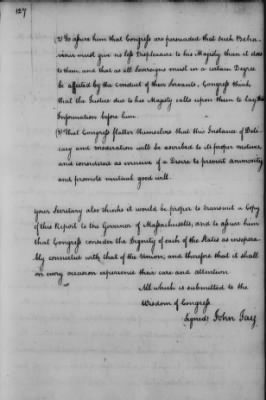 127
2) To assure him that Congress are persuaded that such Behaviour
must give no less Displeasure to his Majesty than it does
to them, and that as all Sovereigns must in a certain Degree
be affected by the conduct of their Servants, Congress think
that the Justice due to his Majesty calls upon them to lay this
Information before him.
3) That Congress flatter themselves that this Instance of Delicacy
and moderation will be ascribed to its proper motives,
and considered as evincive of a Desire to prevent animosity
and promote mutual good will.
your Secretary also thinks it would be proper to transmit a Copy
of this Report to the Governor of Massachusetts, and to assure him
that Congress consider the Dignity of each of the States as inseparably
connected with that of the Union, and therefore that it shall
on every occasion experience their care and attention
All which is submitted to the
Wisdom of Congress
signed) John Jay